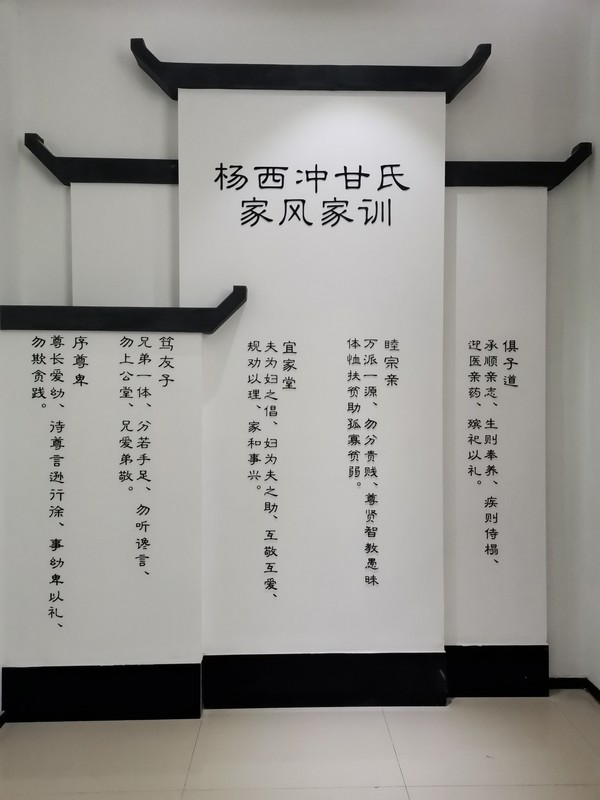 杨西冲甘氏
家风家训
俱子道
承顺亲志、生则奉养、疾则侍榻、
迎医亲药、殡祀以礼。
睦宗亲
万派一源、勿分贵贱、尊贤智教愚昧
体恤扶贫助孤寡贫弱。
宜家堂
夫为妇之倡、妇为夫之助、互敬互爱、
规劝以理、家和事兴。
笃友予
兄弟一体、分若手足、勿听谗言、
勿上公堂、兄爱弟敬。
序尊卑
尊长爱幼、待尊言逊行徐、事幼卑以礼、
勿欺贪践。